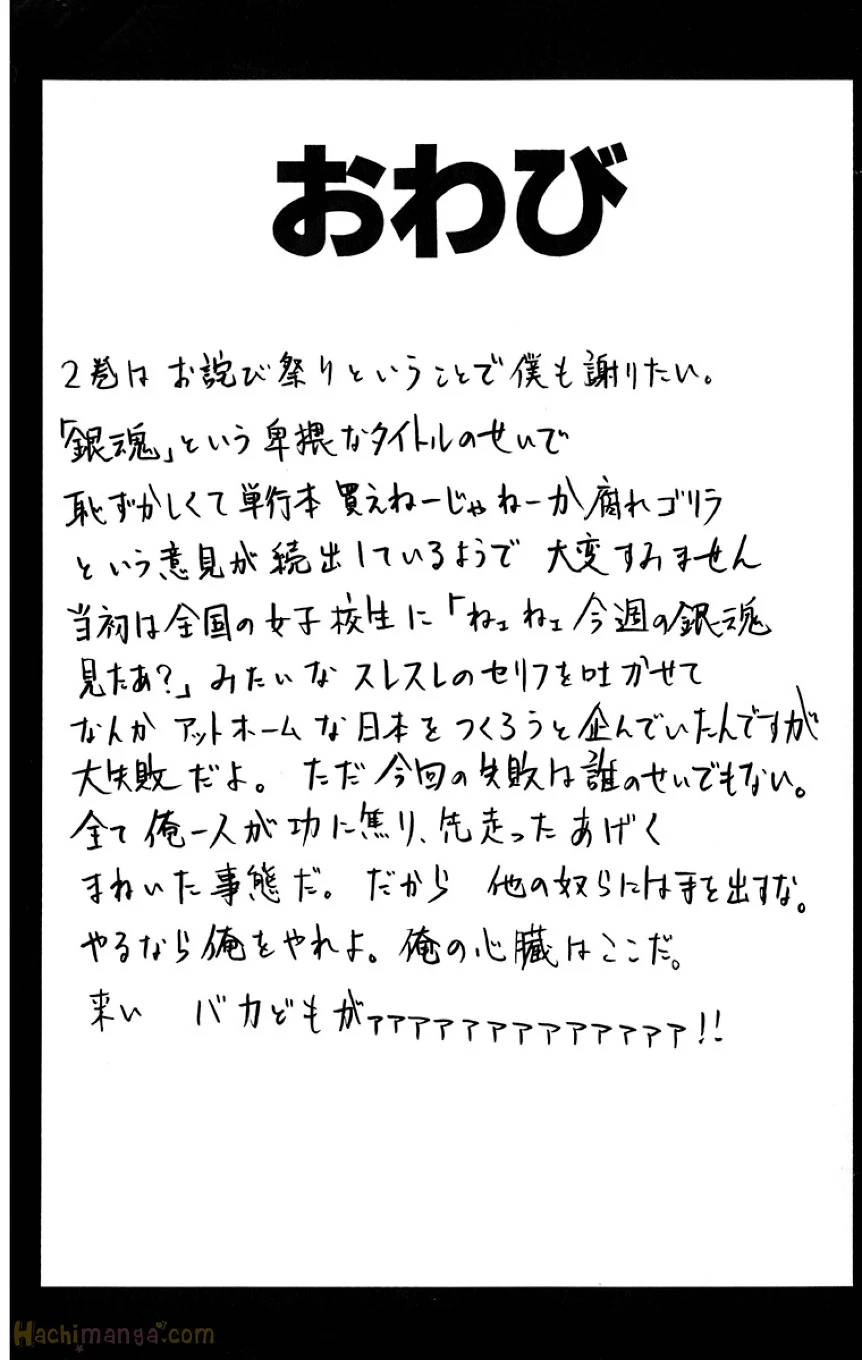 おわび
2巻はお詫び祭りということで僕も謝りたい。
「銀魂」という卑猥なタイトルのせいで
恥ずかしくて単行本買えねーじゃねーか腐れゴリラ
という意見が続出しているようで 大変すみません
当初は全国の女子校生に「ねェねェ今週の銀魂
見たあ?」みたいなスレスレのセリフを吐かせて
なんかアットホームな日本をつくろうと企んでいたんですが
大失敗だよ。ただ今回の失敗は誰のせいでもない。
全て俺一人が功に焦り、先走ったあげく
まねいた事態だ。だから 他の奴らには手を出すな。
やるなら俺をやれよ。俺の心臓はここだ。
来い バカどもがァァァァァァァァァァァァァ!!
Hachimanga.com